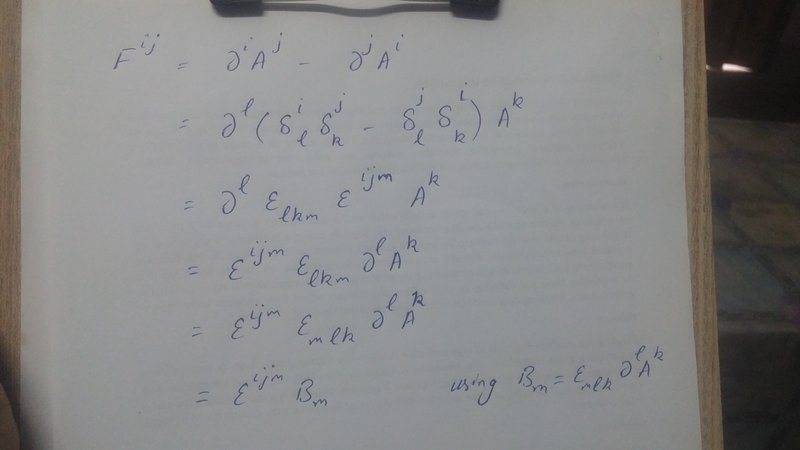 F^{ij} = ∂^i A^j - ∂^j A^i
= ∂^l (δ^i_l δ^j_k - δ^j_l δ^i_k) A^k
= ∂^l ε_{lkm} ε^{ijm} A^k
= ε^{ijm} ε_{lkm} ∂^l A^k
= ε^{ijm} ε_{mlk} ∂^l A^k
= ε^{ijm} B_m using B_m = ε_{mlk} ∂^l A^k